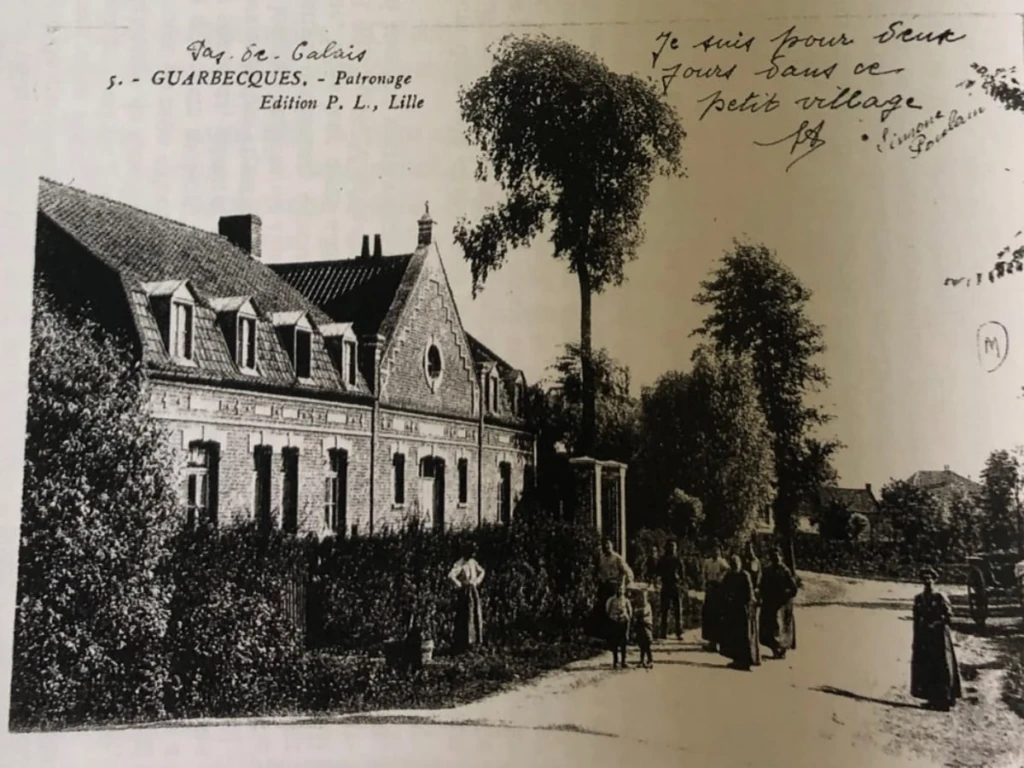 Pas-de-Calais
5. - GUARBECQUES. - Patronage
Edition P. L., Lille
Je suis pour deux
jours dans ce
petit village
Simone
M